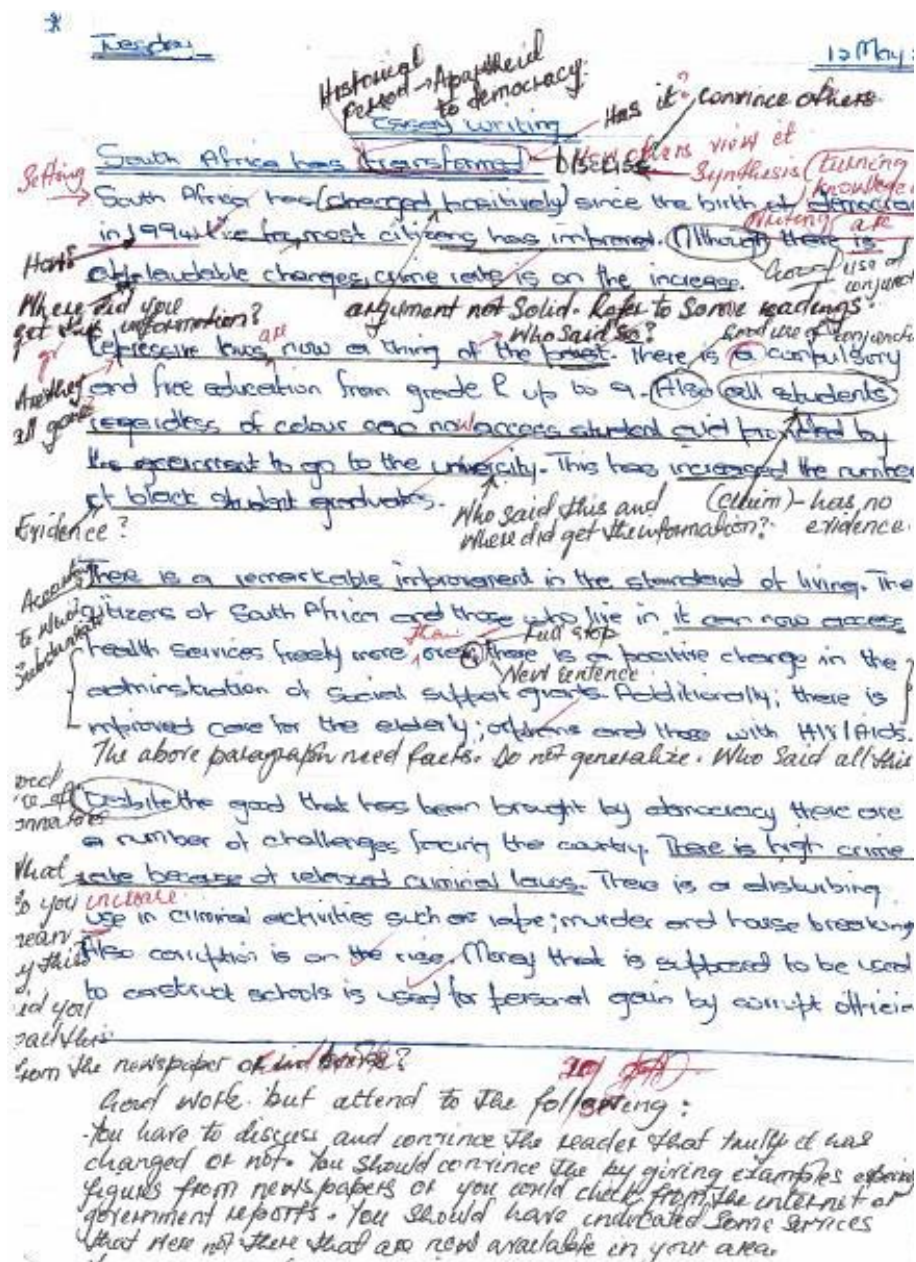 Tuesday
12 May
Historical
Period → Apartheid
to democracy.
Essay writing
Has it? convince others
South Africa has transformed Discuss
others view et
Synthesis (turning
knowledge
Setting
South Africa has (changed positively) since the birth of democracy
writing are
in 1994. Life for most citizens has improved. Although there is
How?
Good use of
conjunction
applaudable changes, crime rate is on the increase.
Where did you
get this information?
argument not solid. Refer to some readings
Who said so?
Good use of conjunction
are
Repressive laws now a thing of the past. There is a compulsory
and free education from grade R up to 9. Also all students
Are they
all gone
regardless of colour can now access student aid provided by
the government to go to the university. This has increased the number
of black student graduates.
Evidence?
Who said this and
where did get the information?
(claim) - has no
evidence.
There is a remarkable improvement in the standard of living. The
According
to who?
Substantiate
citizens of South Africa and those who live in it can now access
than
Full stop
health services freely more over, there is a positive change in the
New sentence
administration of social support grants. Additionally; there is
improved care for the elderly; orphans and those with HIV/Aids.
The above paragraph need facts. Do not generalize. Who said all this
Despite the good that has been brought by democracy there are
a number of challenges facing the country. There is high crime
rate because of relaxed criminal laws. There is a disturbing
increase
use in criminal activities such as rape; murder and house breaking
Also corruption is on the rise. Money that is supposed to be used
to construct schools is used for personal gain by corrupt officia
from the newspaper or
Good work. but attend to the following:
You have to discuss and convince the reader that truly it has
changed or not. You should convince the by giving examples
figures from newspapers or you could check from the internet or
government reports. You should have indicated some services
that were not there that are now available in your area.